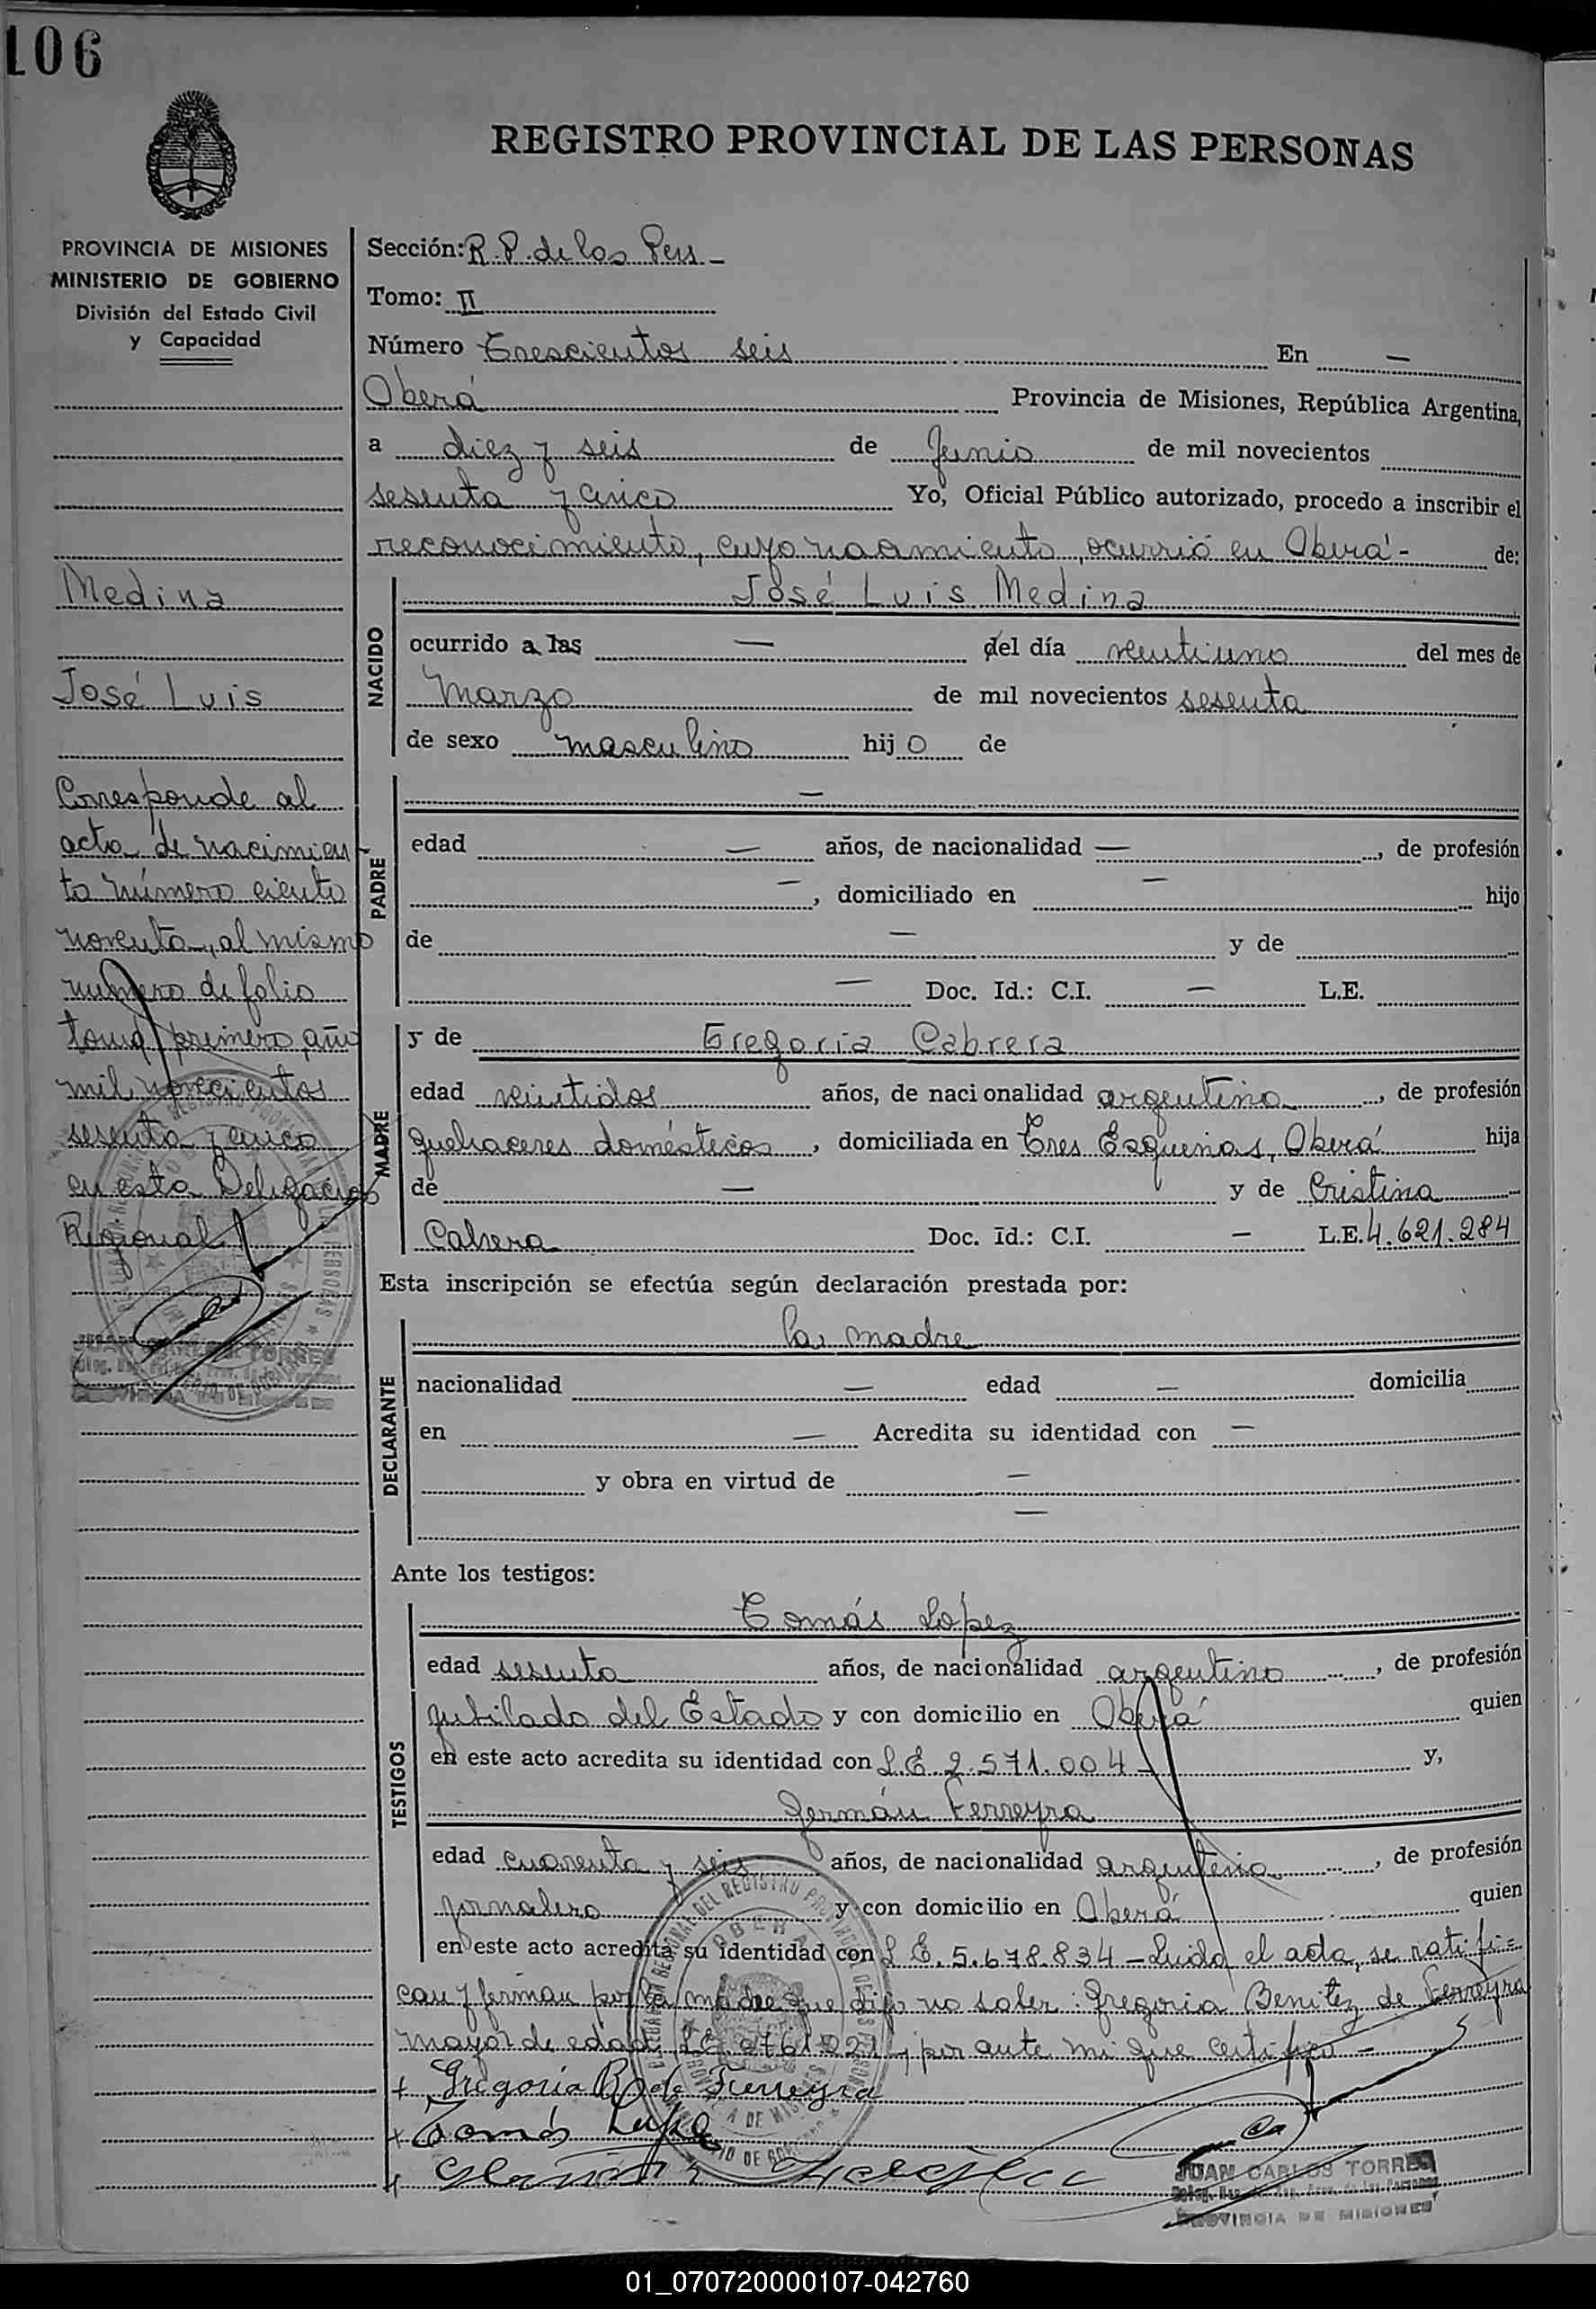 106
REGISTRO PROVINCIAL DE LAS PERSONAS
PROVINCIA DE MISIONES
MINISTERIO DE GOBIERNO
División del Estado Civil
y Capacidad
Medina
José Luis
Corresponde al
acta de nacimien
to número ciento
noventa, al mismo
número de folio
tomo primero, año
mil novecientos
sesenta y cinco
en esta Delegación
Regional
Sección: R. P. de las Pers -
Tomo: II
Número Trescientos seis En -
Oberá Provincia de Misiones, República Argentina,
a diez y seis de Junio de mil novecientos
sesenta y cinco Yo, Oficial Público autorizado, procedo a inscribir el
reconocimiento, cuyo nacimiento, ocurrió en Oberá - de:
NACIDO
José Luis Medina
ocurrido a las - del día veintiuno del mes de
Marzo de mil novecientos sesenta
de sexo masculino hijo de
PADRE
-
edad - años, de nacionalidad -, de profesión
-, domiciliado en - hijo
de - y de
- Doc. Id.: C.I. - L.E.
MADRE
y de Gregoria Cabrera
edad veintidos años, de nacionalidad argentina, de profesión
quehaceres domésticos, domiciliada en Tres Esquinas, Oberá hija
de - y de Cristina
Cabrera Doc. Id.: C.I. - L.E. 4.621.284
Esta inscripción se efectúa según declaración prestada por:
DECLARANTE
la madre
nacionalidad - edad - domicilia
en - Acredita su identidad con -
y obra en virtud de -
-
Ante los testigos:
TESTIGOS
Tomás Lopez
edad sesenta años, de nacionalidad argentino, de profesión
jubilado del Estado y con domicilio en Oberá quien
en este acto acredita su identidad con L.E. 2.571.004 - y,
Germán Ferreyra
edad cuarenta y seis años, de nacionalidad argentina, de profesión
jornalero y con domicilio en Oberá quien
en este acto acredita su identidad con L.E. 5.678.834 - Leida el acta, se ratifi=
can y firman por la madre que dijo no saber: Gregoria Benitez de Ferreyra
mayor de edad, L.E. y por ante mi que certifico -
+ Gregoria B de Ferreyra
+ Tomás Lopez
+ Germán Ferreyra
JUAN CARLOS TORRES
PROVINCIA DE MISIONES
01_070720000107-042760